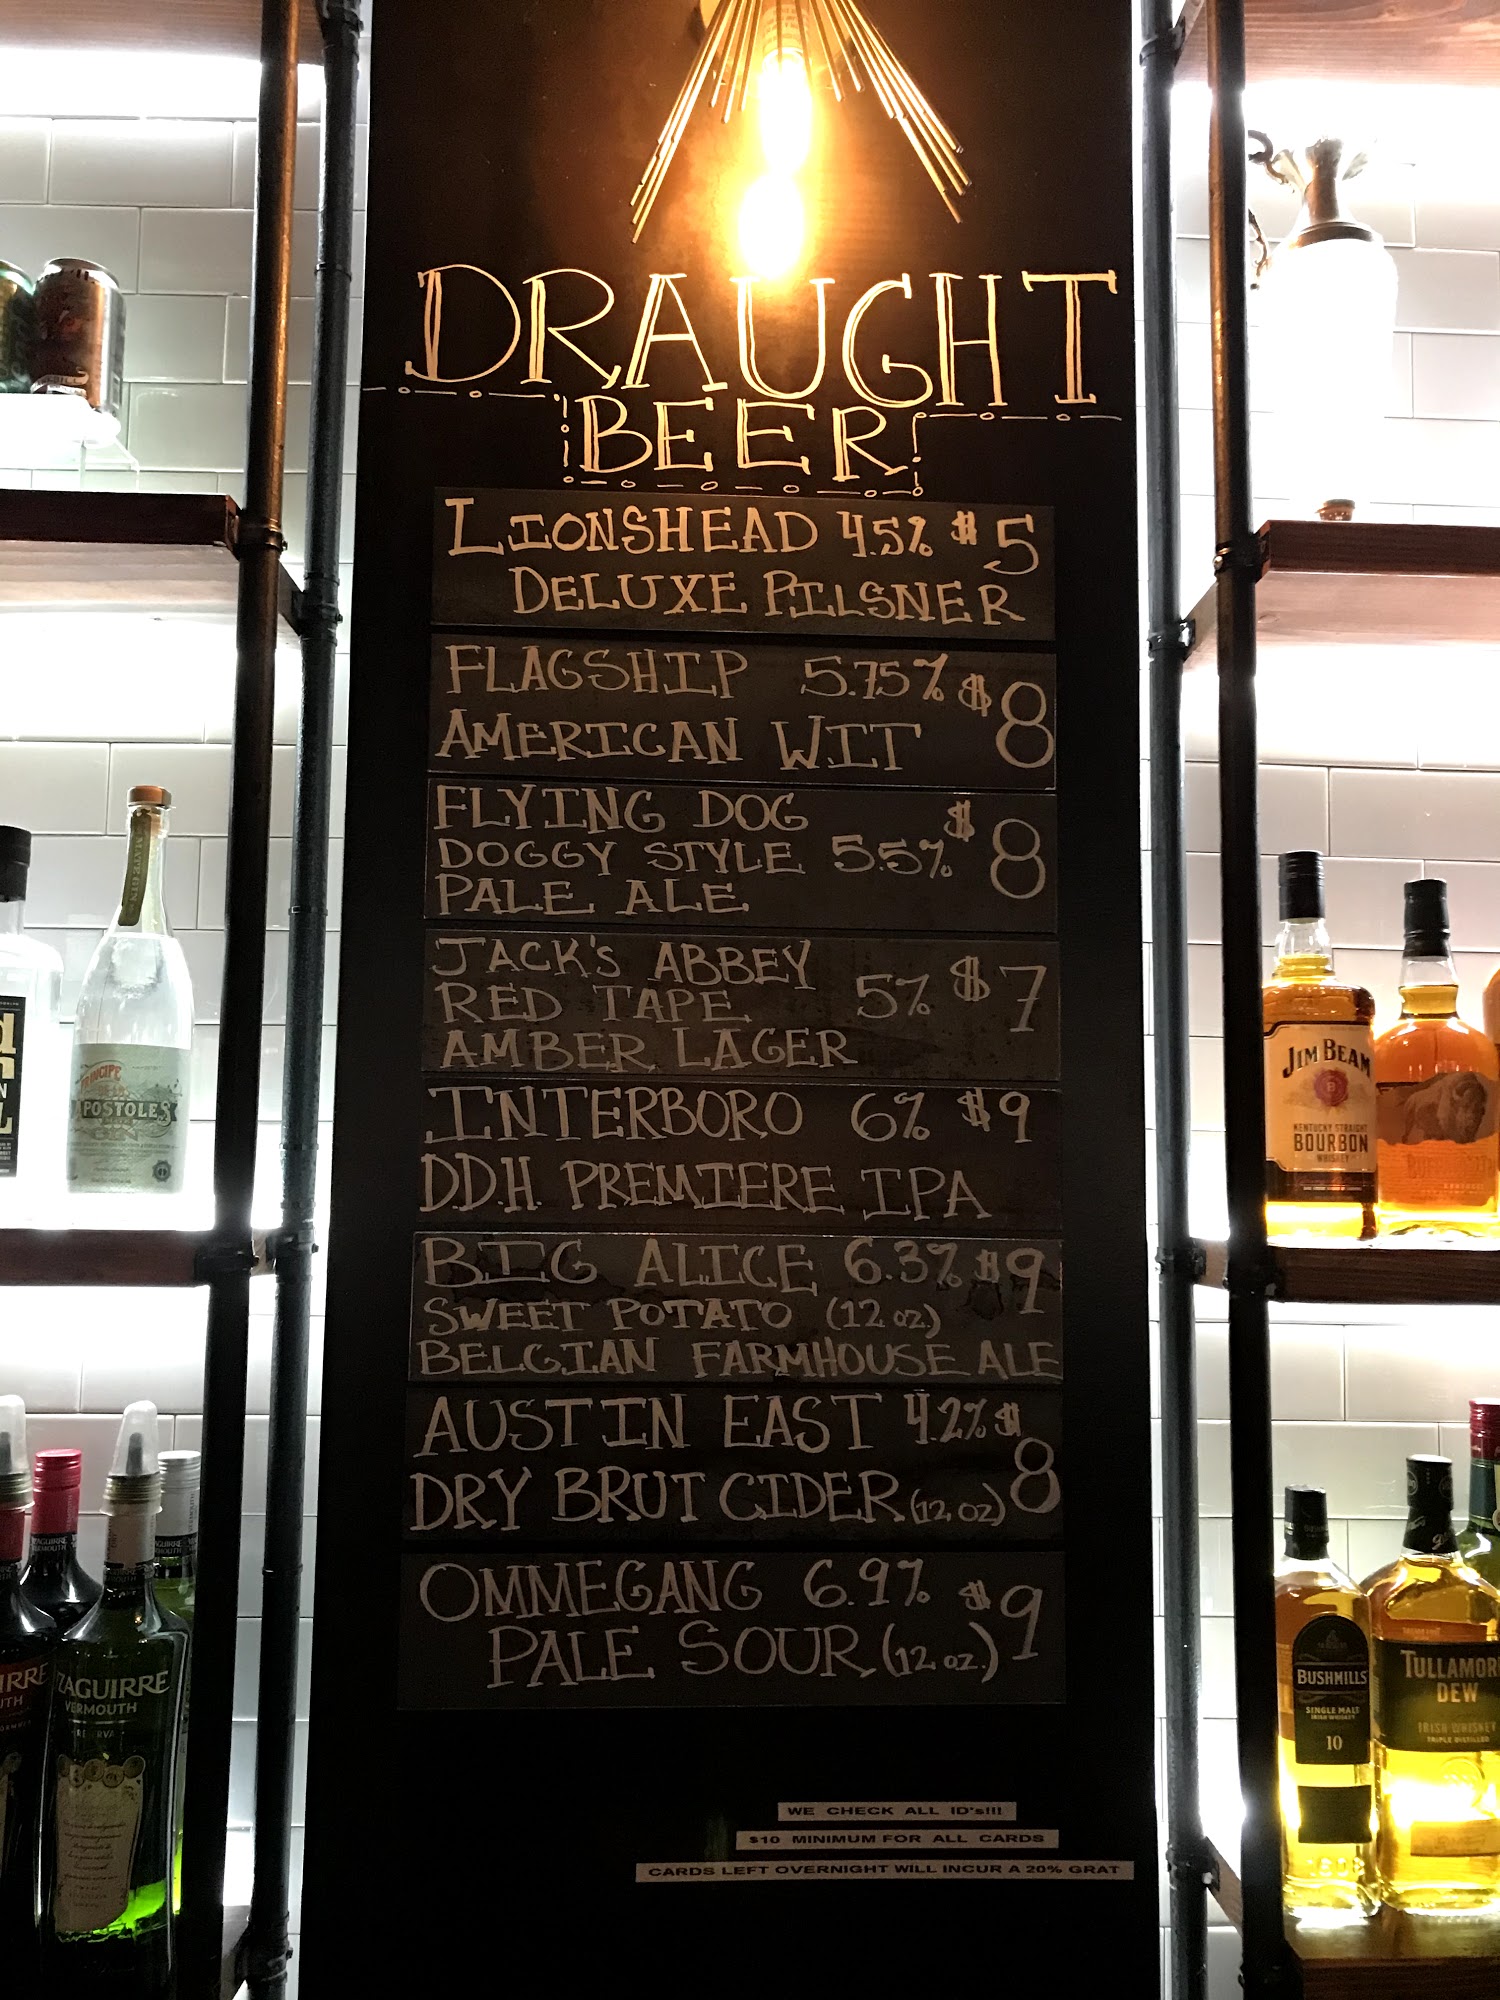 DRAUGHT
BEER
LIONSHEAD 4.5% $5
DELUXE PILSNER
FLAGSHIP 5.75% $8
AMERICAN WIT
FLYING DOG $8
DOGGY STYLE 5.5%
PALE ALE
JACK'S ABBEY $7
RED TAPE 5%
AMBER LAGER
INTERBORO 6% $9
D.D.H. PREMIERE IPA
BIG ALICE 6.3% $9
SWEET POTATO (12 oz.)
BELGIAN FARMHOUSE ALE
AUSTIN EAST 4.2% $8
DRY BRUT CIDER (12 oz)
OMMEGANG 6.9% $9
PALE SOUR (12 oz.)
WE CHECK ALL ID's!!!
$10 MINIMUM FOR ALL CARDS
CARDS LEFT OVERNIGHT WILL INCUR A 20% GRAT
PRINCIPE
APOSTOLES
GIN
ZAGUIRRE
VERMOUTH
RESERVA
JIM BEAM
KENTUCKY STRAIGHT
BOURBON
WHISKEY
BUSHMILLS
SINGLE MALT
IRISH WHISKEY
10
TULLAMOR
DEW
IRISH WHISKEY
TRIPLE DISTILLED